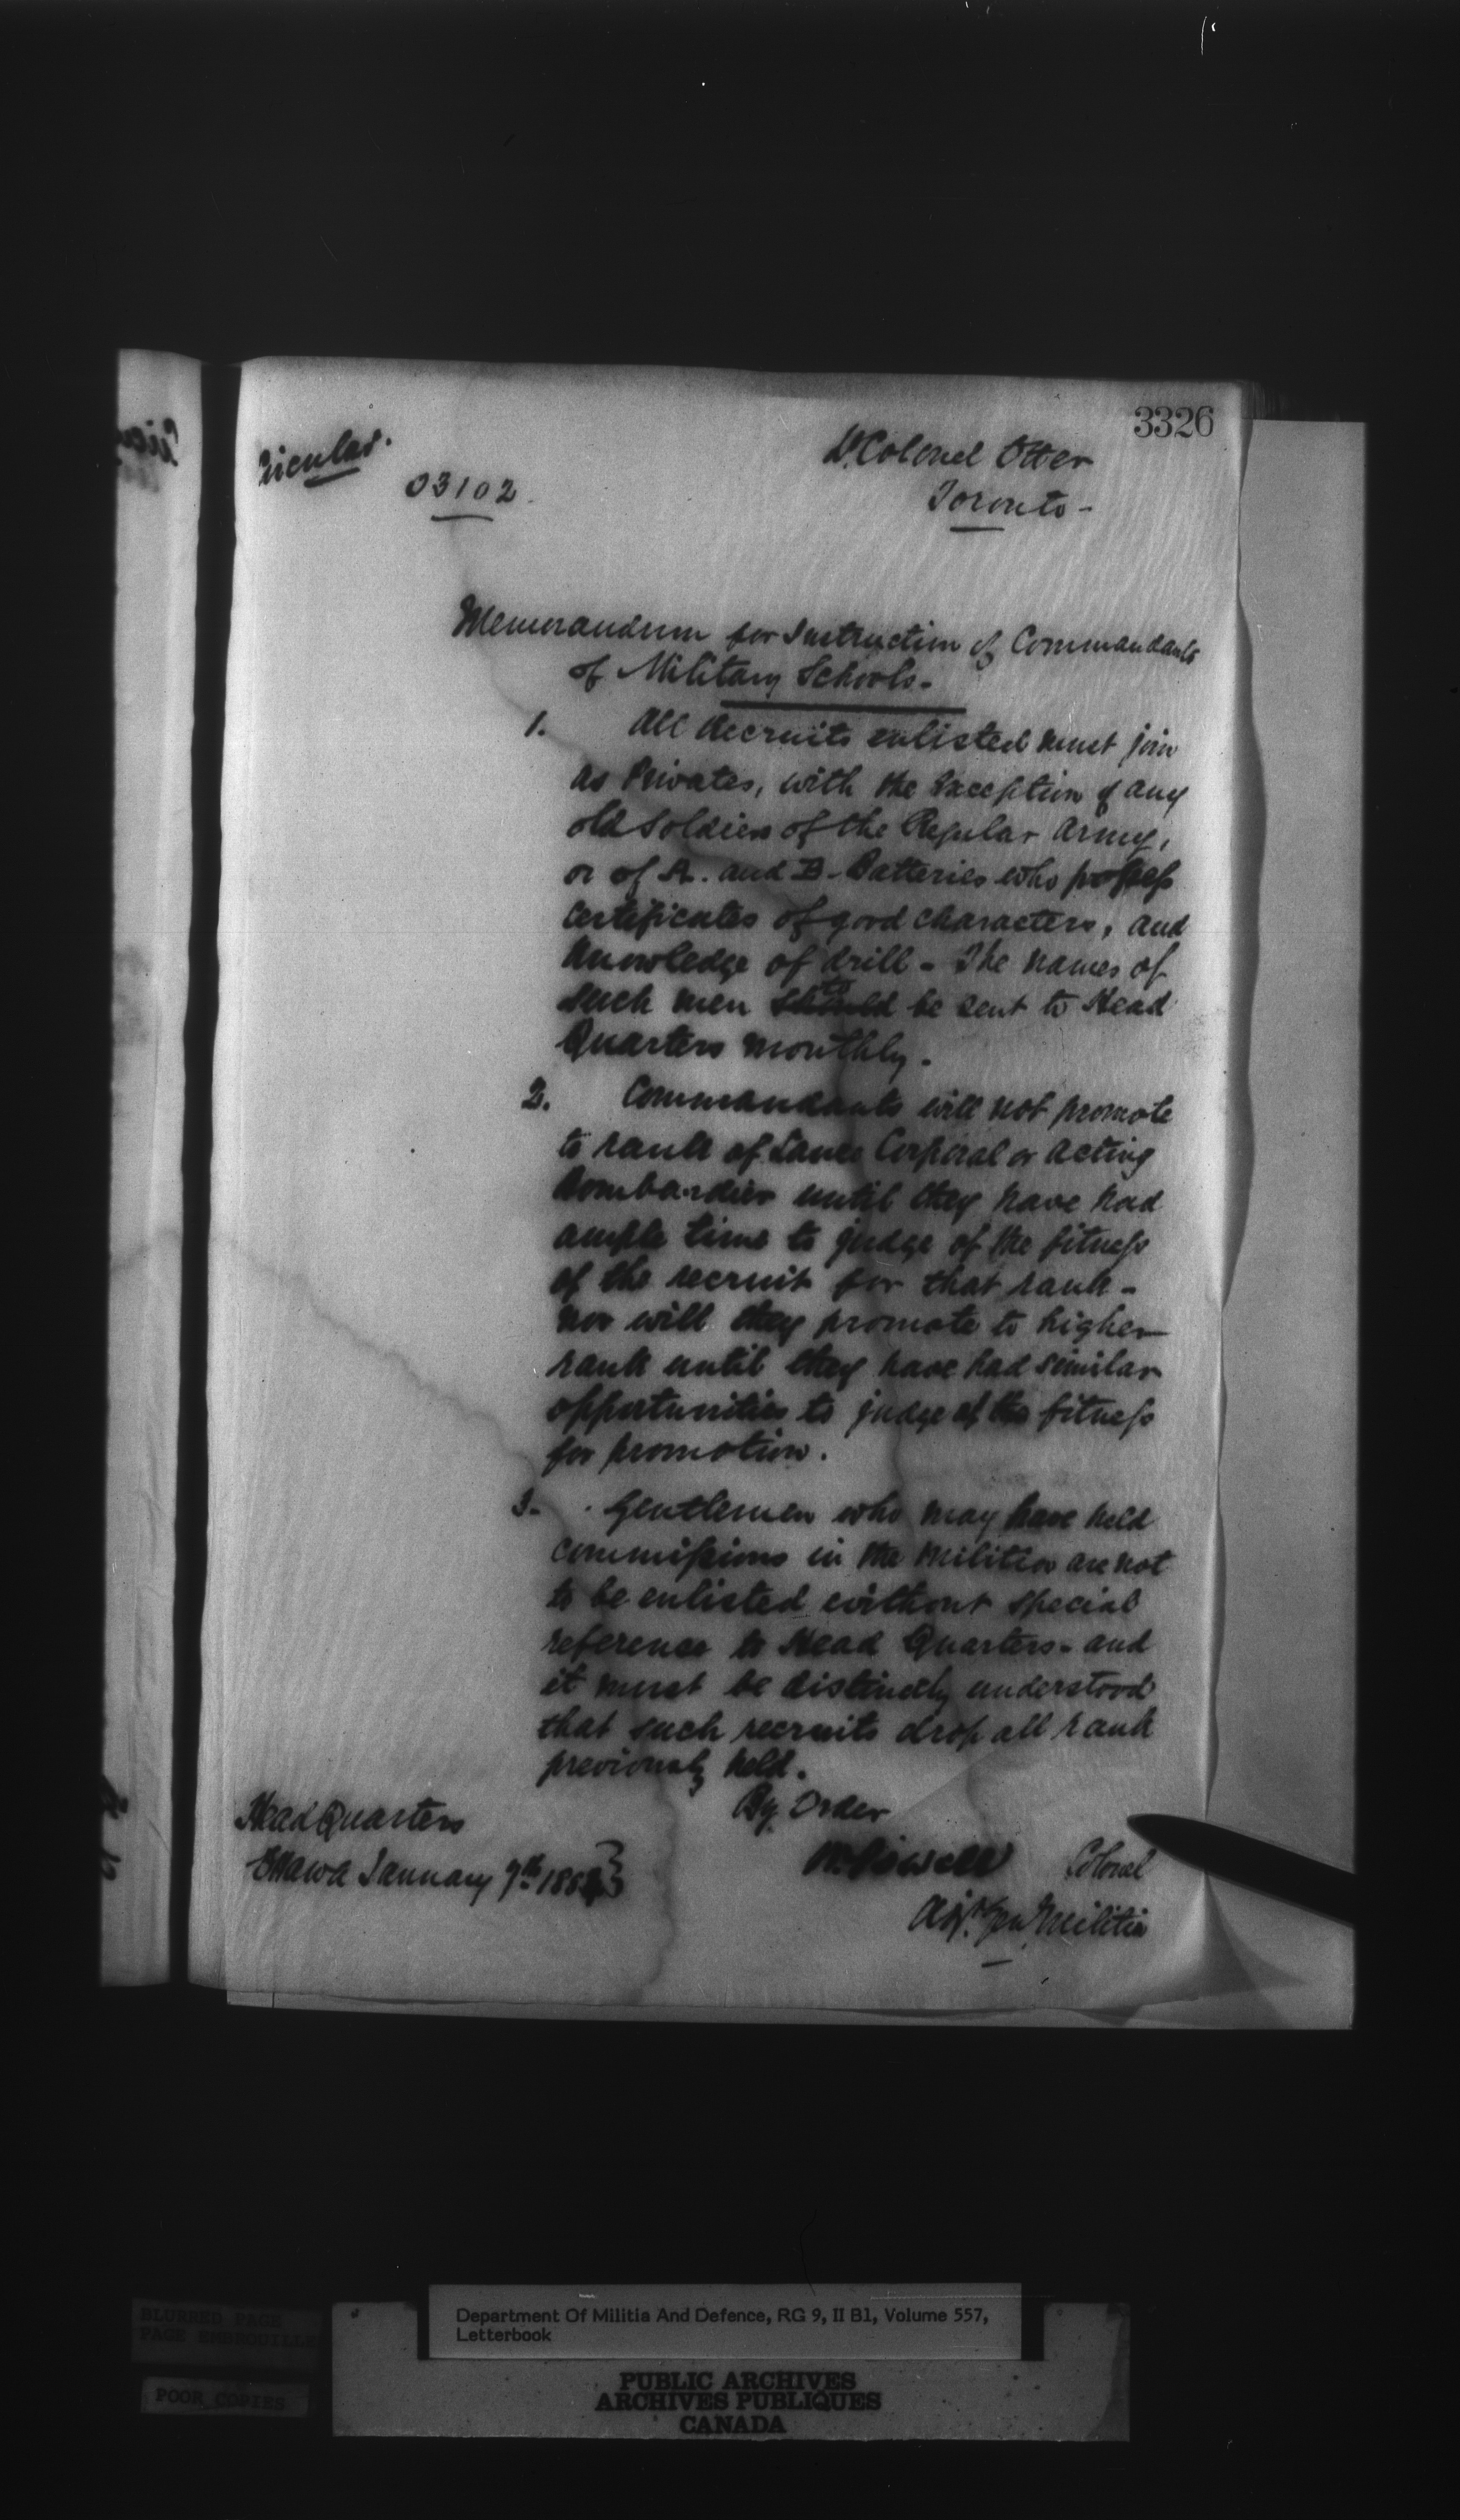 3326
Circular.
03102
Lt. Colonel Otter
Toronto -
Memorandum for Instruction of Commandants
of Military Schools.
1. All Recruits enlisted must join
as Privates, with the exception of any
old Soldiers of the Regular Army,
or of A. and B. Batteries who possess
certificates of good characters, and
knowledge of drill - The names of
such men to be sent to Head
Quarters monthly.
2. Commandants will not promote
to rank of Lance Corporal or Acting
Bombardier until they have had
ample time to judge of the fitness
of the recruit for that rank -
nor will they promote to higher
rank until they have had similar
opportunities to judge of the fitness
for promotion.
3. Gentlemen who may have held
commissions in the Militia are not
to be enlisted without special
reference to Head Quarters - and
it must be distinctly understood
that such recruits drop all rank
previously held.
By Order
Head Quarters
Ottawa January 9th 1884
W. Powell Colonel
Adjt. Gen Militia
BLURRED PAGE
PAGE EMBROUILLEE
POOR COPIES
Department Of Militia And Defence, RG 9, II B1, Volume 557,
Letterbook
PUBLIC ARCHIVES
ARCHIVES PUBLIQUES
CANADA